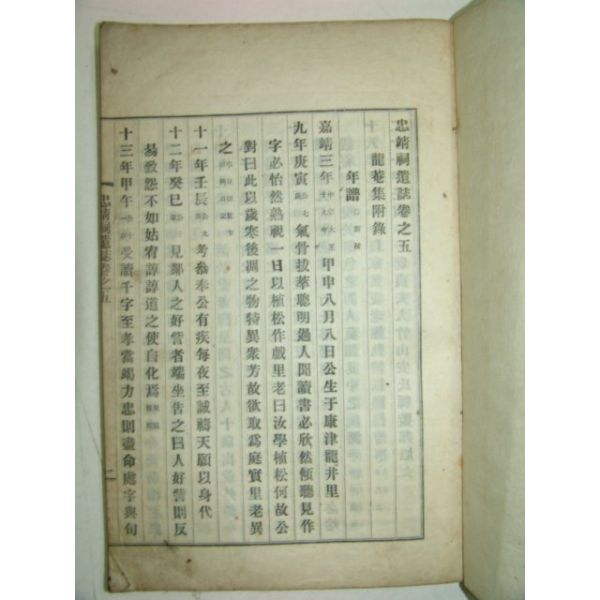 忠靖祠遺誌卷之五
龍菴集附錄
年譜
嘉靖三年甲申八月八日公生于康津龍井里
九年庚寅氣骨拔萃聰明過人聞讀書必欣然傾聽見作
字必怡然熟視一日以植松作戲里老曰汝學植松何故公
對曰此以歲寒後凋之物特異衆芳故欲取爲庭實里老異
之
十一年壬辰考參奉公有疾每夜至誠禱天願以身代
十二年癸巳見鄰人之好訾者端坐告之曰人好訾則反
易致怨不如姑宥諄諄道之使自化焉
十三年甲午受讀千字至孝當竭力忠則盡命處字與句
忠靖祠遺誌卷之五